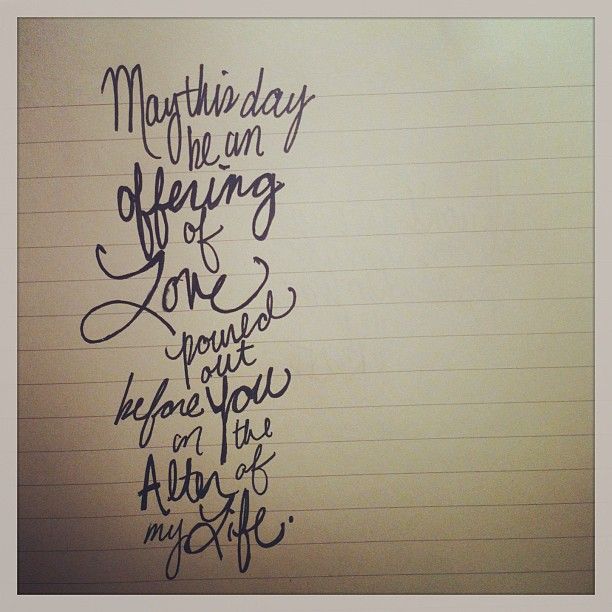 May this day
be an
offering
of
Love
poured
out
before You
on the
Alter of
my Life.